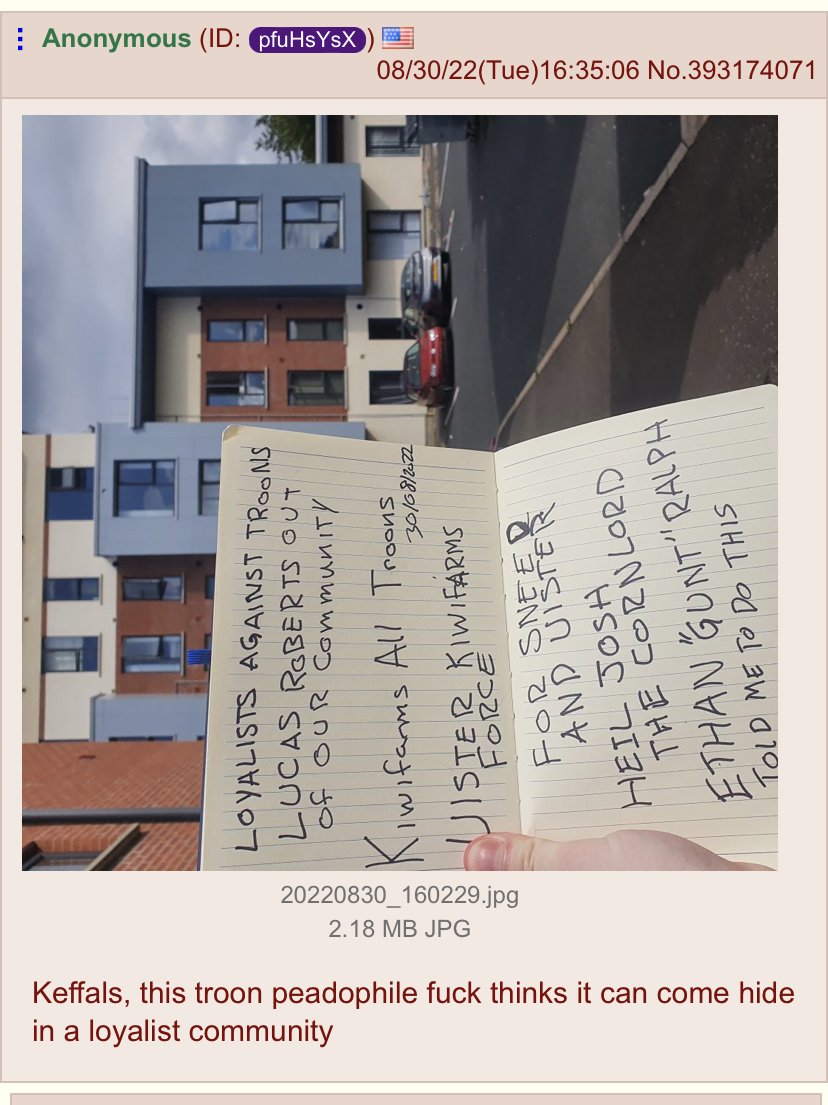 Anonymous (ID: pfuHsYsX)
08/30/22(Tue)16:35:06 No.393174071
LOYALISTS AGAINST TROONS
LUCAS ROBERTS OUT
OF OUR Community
Kiwifarms All Troons
30/08/2022
UlSTER KIWIFARMS
FORCE
FOR SNEED
AND UlSTER
HEIL JOSH
THE CORN LORD
ETHAN "GUNT" RALPH
TOLD ME TO DO THIS
20220830_160229.jpg
2.18 MB JPG
Keffals, this troon peadophile fuck thinks it can come hide
in a loyalist community